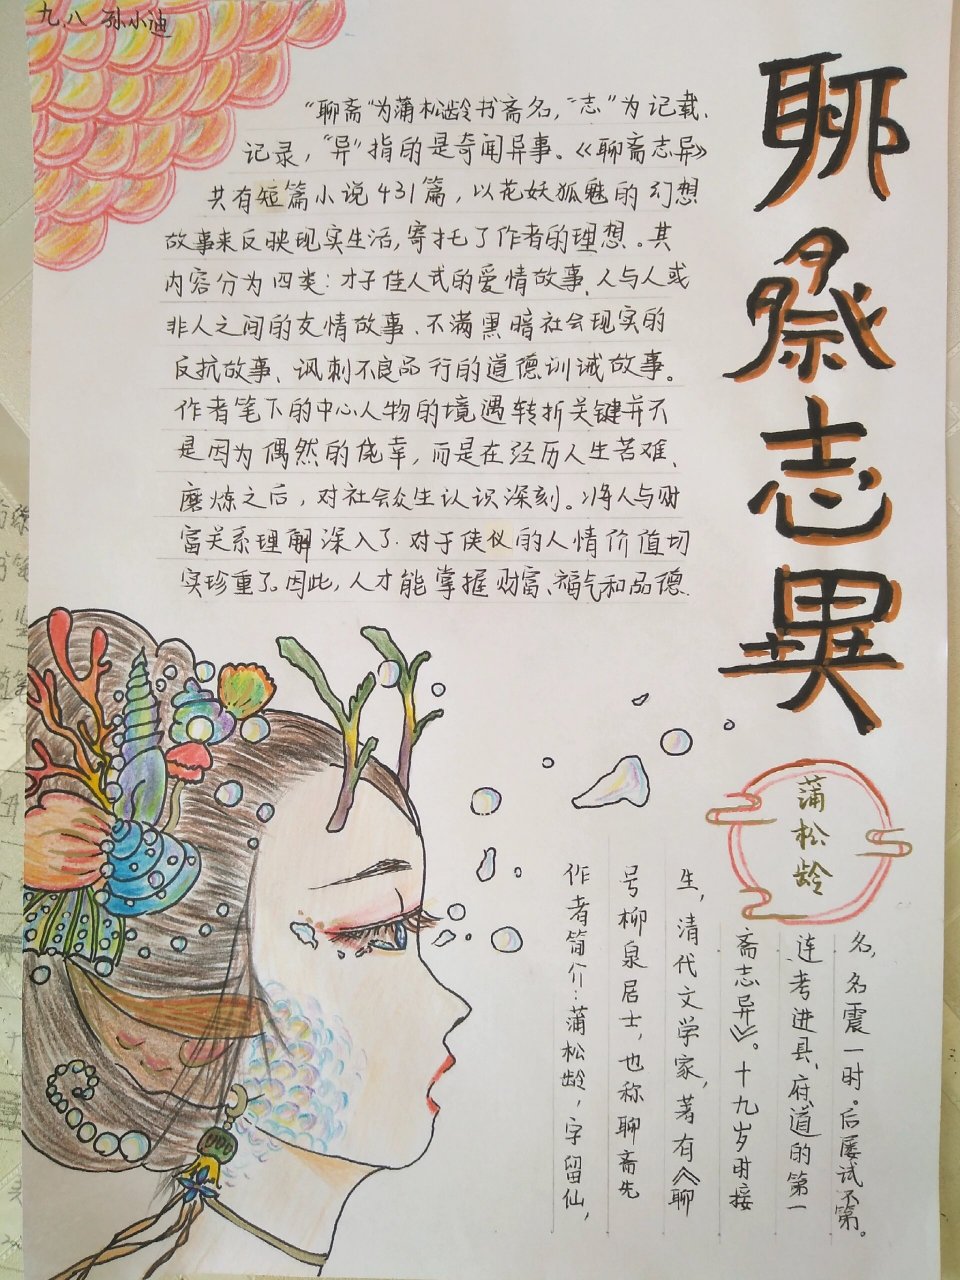 九.八 孙小迪
聊斋志異
"聊斋"为蒲松龄书斋名，"志"为记载、
记录，"异"指的是奇闻异事。《聊斋志异》
共有短篇小说431篇，以花妖狐魅的幻想
故事来反映现实生活，寄托了作者的理想。其
内容分为四类：才子佳人式的爱情故事、人与人或
非人之间的友情故事、不满黑暗社会现实的
反抗故事、讽刺不良品行的道德训诫故事。
作者笔下的中心人物的境遇转折关键并不
是因为偶然的侥幸，而是在经历人生苦难、
磨炼之后，对社会众生认识深刻。将人与财
富关系理解深入了.对于侠仪的人情价值切
实珍重了。因此，人才能掌握财富、福气和品德.
蒲松龄
作者简介：蒲松龄，字留仙，
号柳泉居士，也称聊斋先
生，清代文学家，著有《聊
斋志异》。十九岁时接
连考进县、府、道的第一
名，名震一时。后屡试不第。